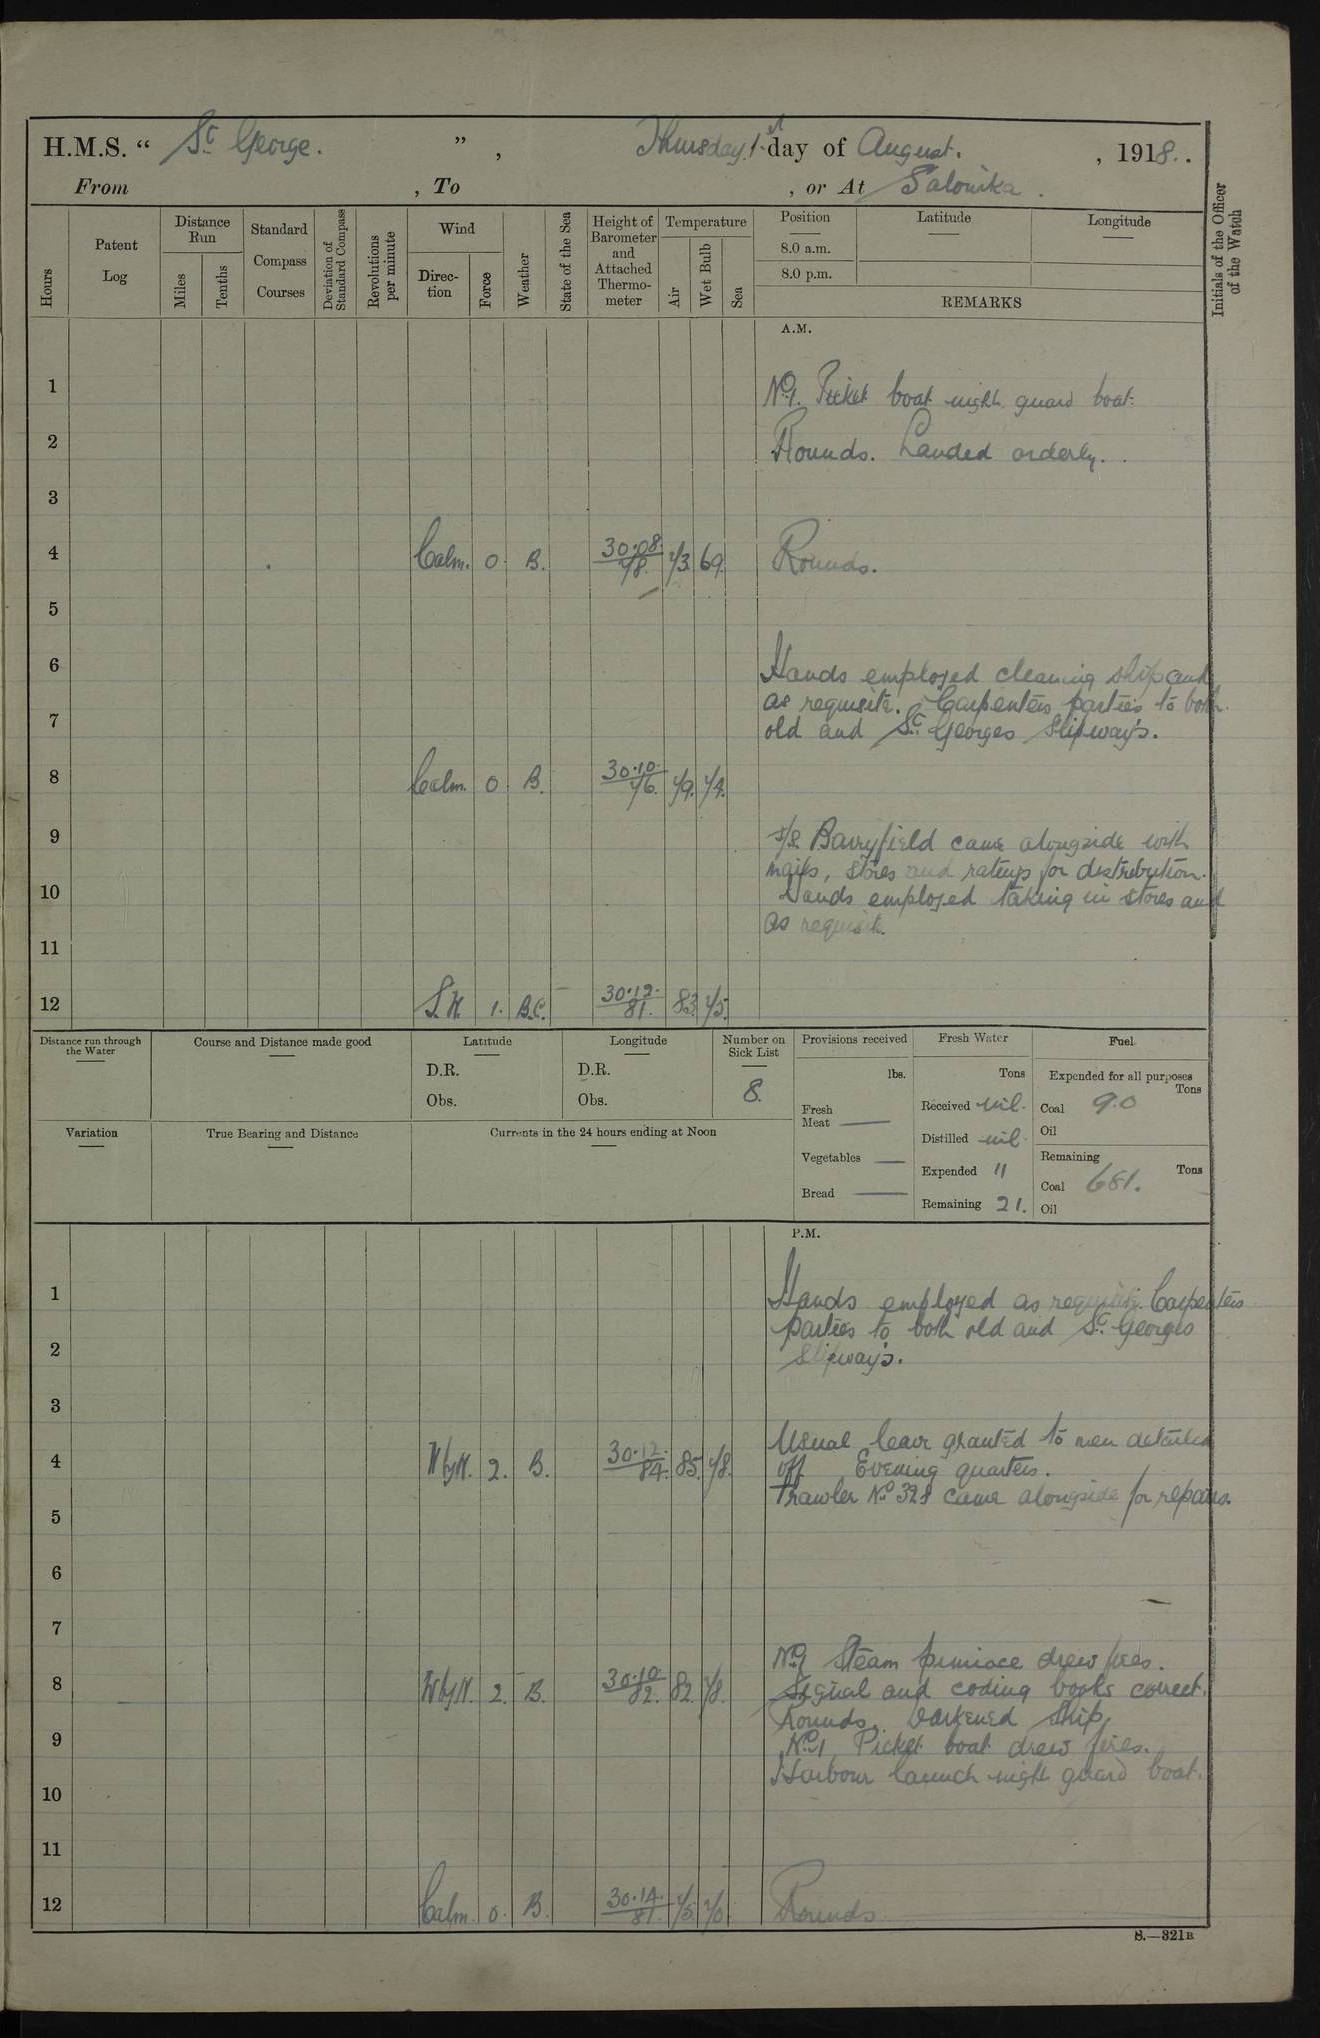 H.M.S. “ St. George. ” , Thursday 1st day of August. , 1918.
From , To , or At Salonika.
Hours
Patent Log
Distance Run
Miles
Tenths
Standard Compass Courses
Deviation of Standard Compass
Revolutions per minute
Wind
Direc-tion
Force
Weather
State of the Sea
Height of Barometer and Attached Thermo-meter
Temperature
Air
Wet Bulb
Sea
Position
8.0 a.m.
8.0 p.m.
Latitude
Longitude
REMARKS
Initials of the Officer of the Watch
A.M.
1
No. 1. Picket boat night guard boat.
2
Rounds. Landed orderly.
3
4 Calm. 0. B. 30.08. 78. 73. 69. Rounds.
5
6
Hands employed cleaning ship and
as requisite. Carpenters parties to both
7
old and St. Georges Slipways.
8 Calm. 0. B. 30.10. 76. 79. 74.
9
s/s. Barryfield came alongside with
mails, stores and ratings for distribution.
10
Hands employed taking in stores and
as requisite.
11
12 S.W. 1. B.C. 30.12. 81. 83. 75.
Distance run through the Water
Course and Distance made good
Latitude
D.R.
Obs.
Longitude
D.R.
Obs.
Number on Sick List
8.
Provisions received
lbs.
Fresh Meat —
Vegetables —
Bread —
Fresh Water
Tons
Received nil.
Distilled nil.
Expended 11
Remaining 21.
Fuel
Expended for all purposes
Tons
Coal 90
Oil
Remaining
Tons
Coal 681.
Oil
Variation
True Bearing and Distance
Currents in the 24 hours ending at Noon
P.M.
1
Hands employed as requisite. Carpenters
parties to both old and St. Georges
2
Slipways.
3
Usual leave granted to men detailed
4 W by N. 2. B. 30.12. 84. 85. 78. off Evening quarters.
Trawler No. 328 came alongside for repairs.
5
6
7
No. 1 Steam pinnace drew fires.
8 W by N. 2. B. 30.10 82. 82. 78. Signal and coding books correct.
Rounds. Darkened Ship.
9
No. 1 Picket boat drew fires.
Harbour launch night guard boat.
10
11
12 Calm. 0. B. 30.14. 81. 75. 70. Rounds
S.—321B